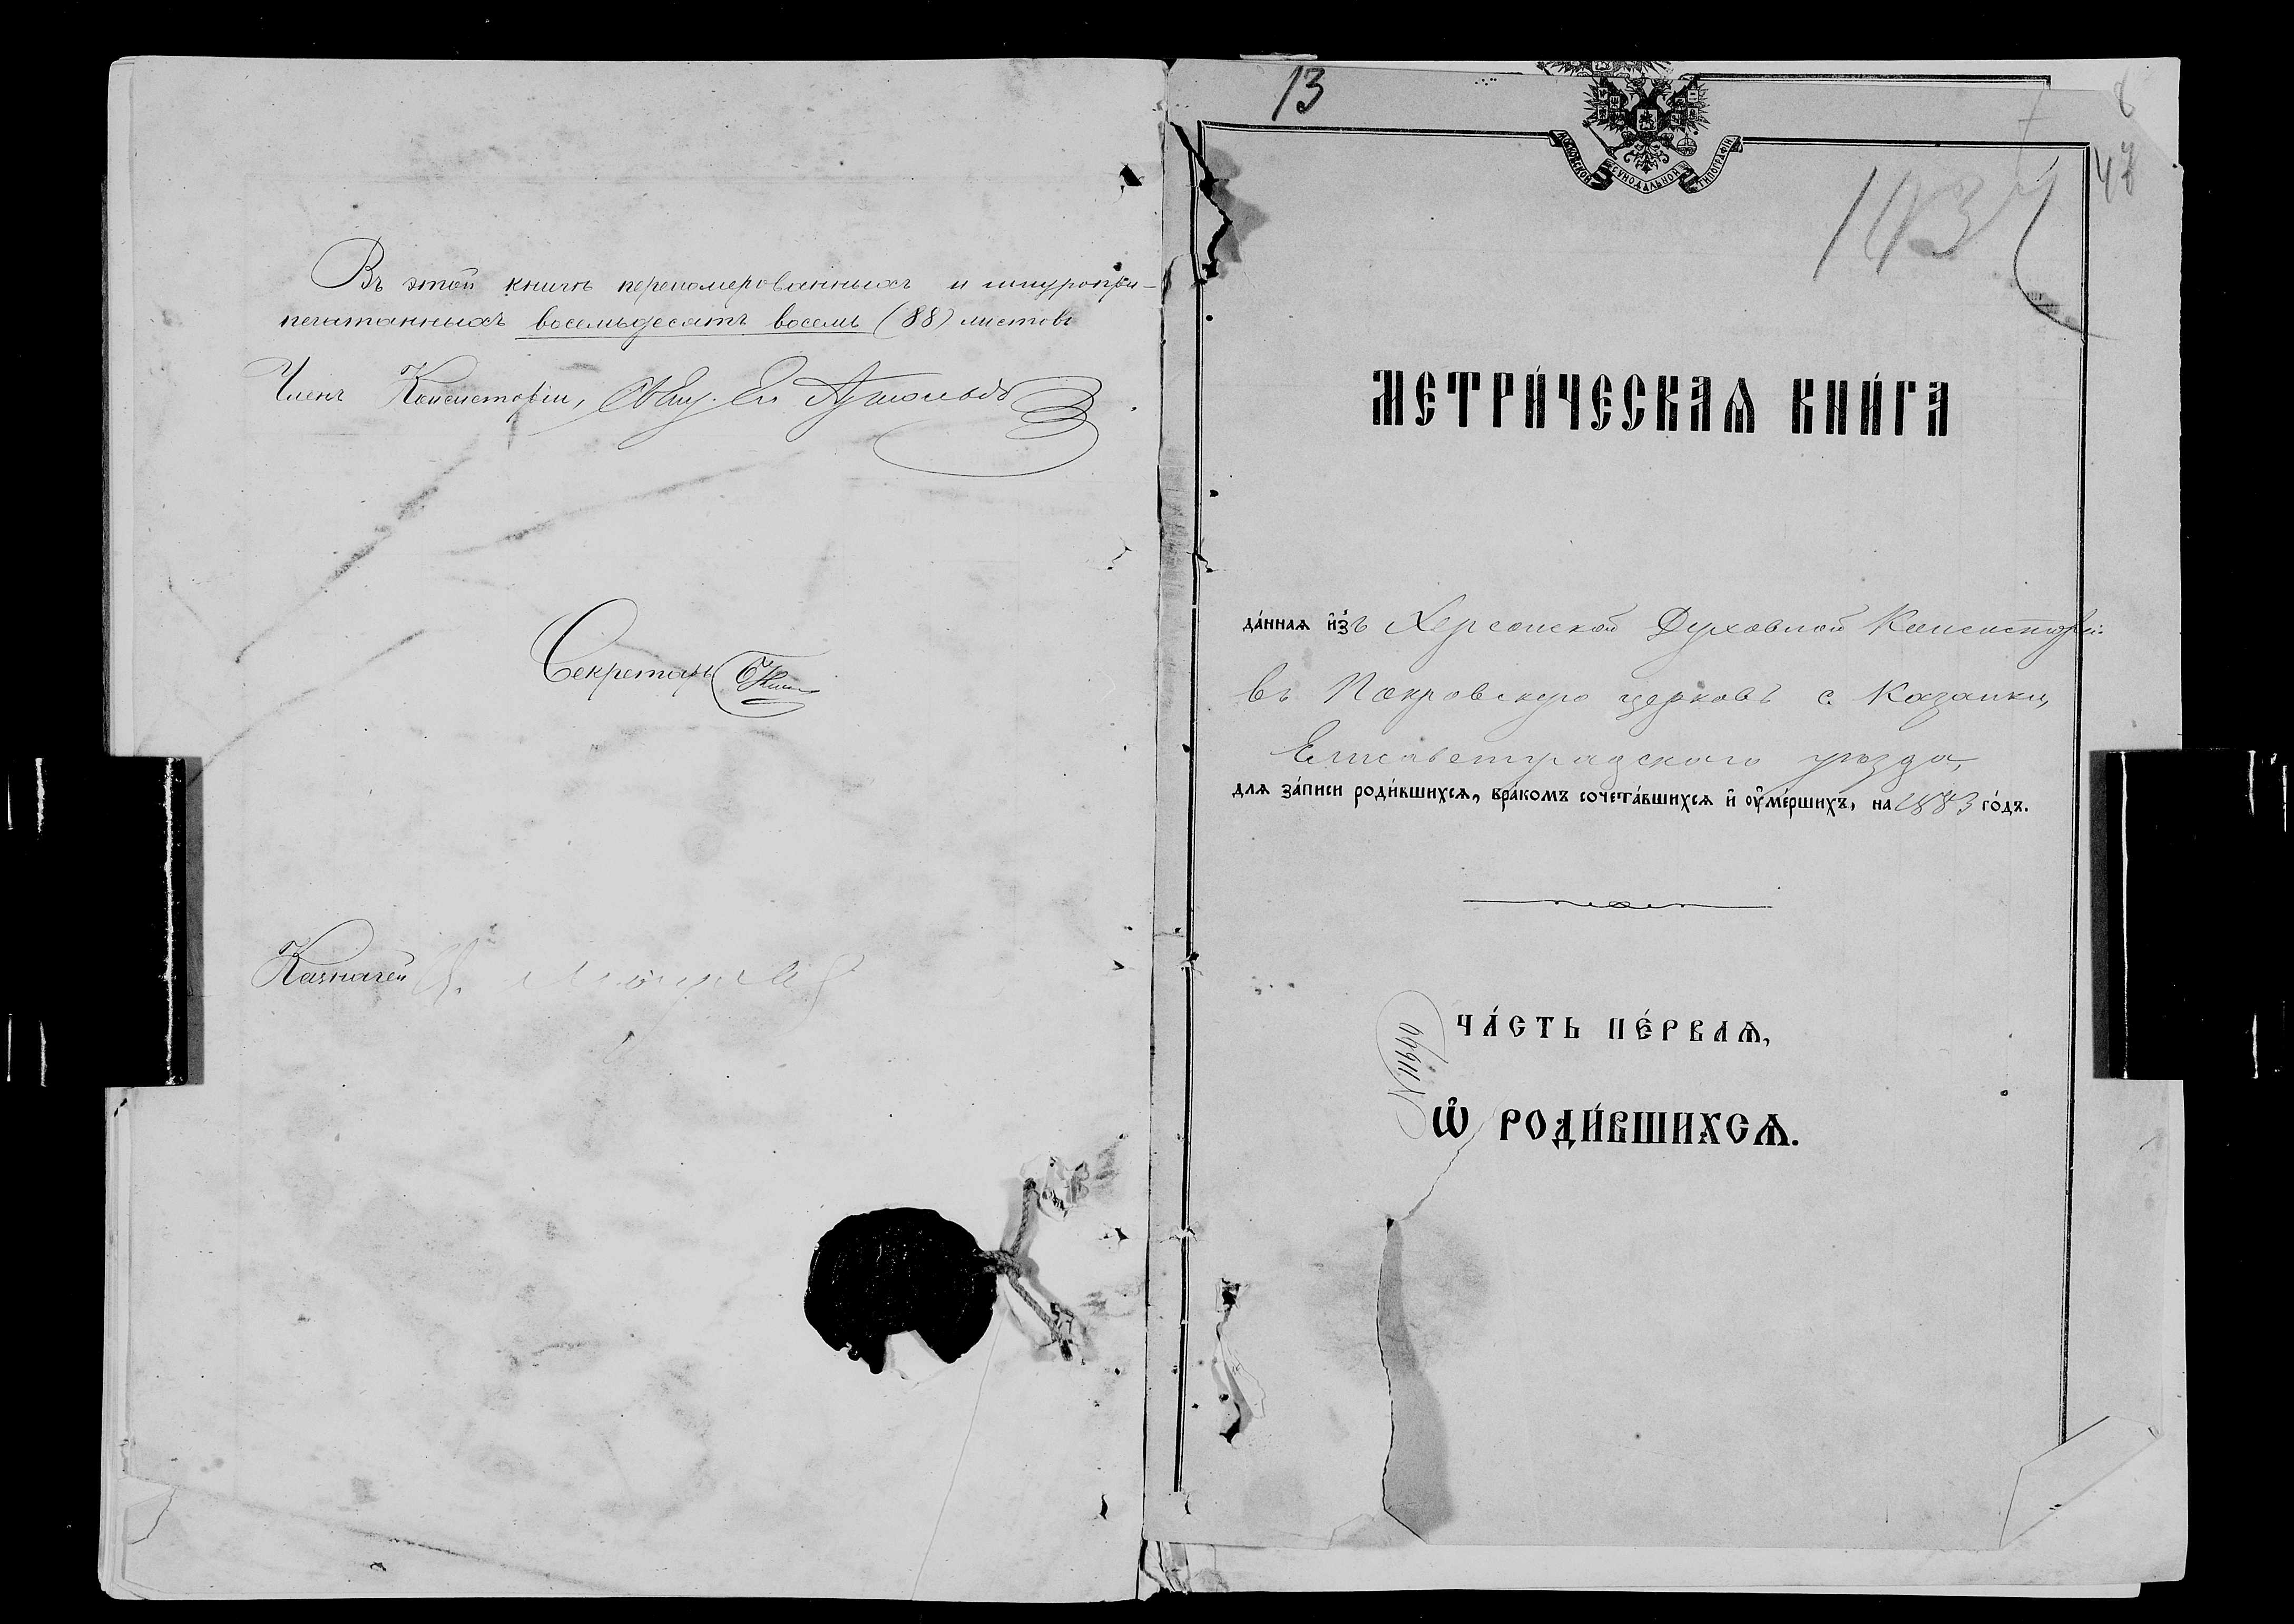 Въ этой книгѣ перенумерованныхъ и шнуропри-
печатанныхъ восемьдесятъ восемь (88) листовъ
Членъ Консисторіи,
Секретарь
Казначей
13
МОСКОВСКОЙ СУНОДАЛЬНОЙ ТИПОГРАФІИ
48
МЕТРИ́ЧЕСКАѦ КНИ́ГА
да́ннаѧ и҆зъ Херсонской Духовной Консисторіи
въ Покровскую церковь с. Казанки,
Елисаветградскаго уѣзда,
длѧ за́писи роди́вшихсѧ, бра́комъ сочета́вшихсѧ и҆ ᲂу҆ме́ршихъ, на 1883 го́дъ.
ЧА́СТЬ ПЕ́РВАѦ,
N 11540
Ѽ РОДИ́ВШИХСѦ.